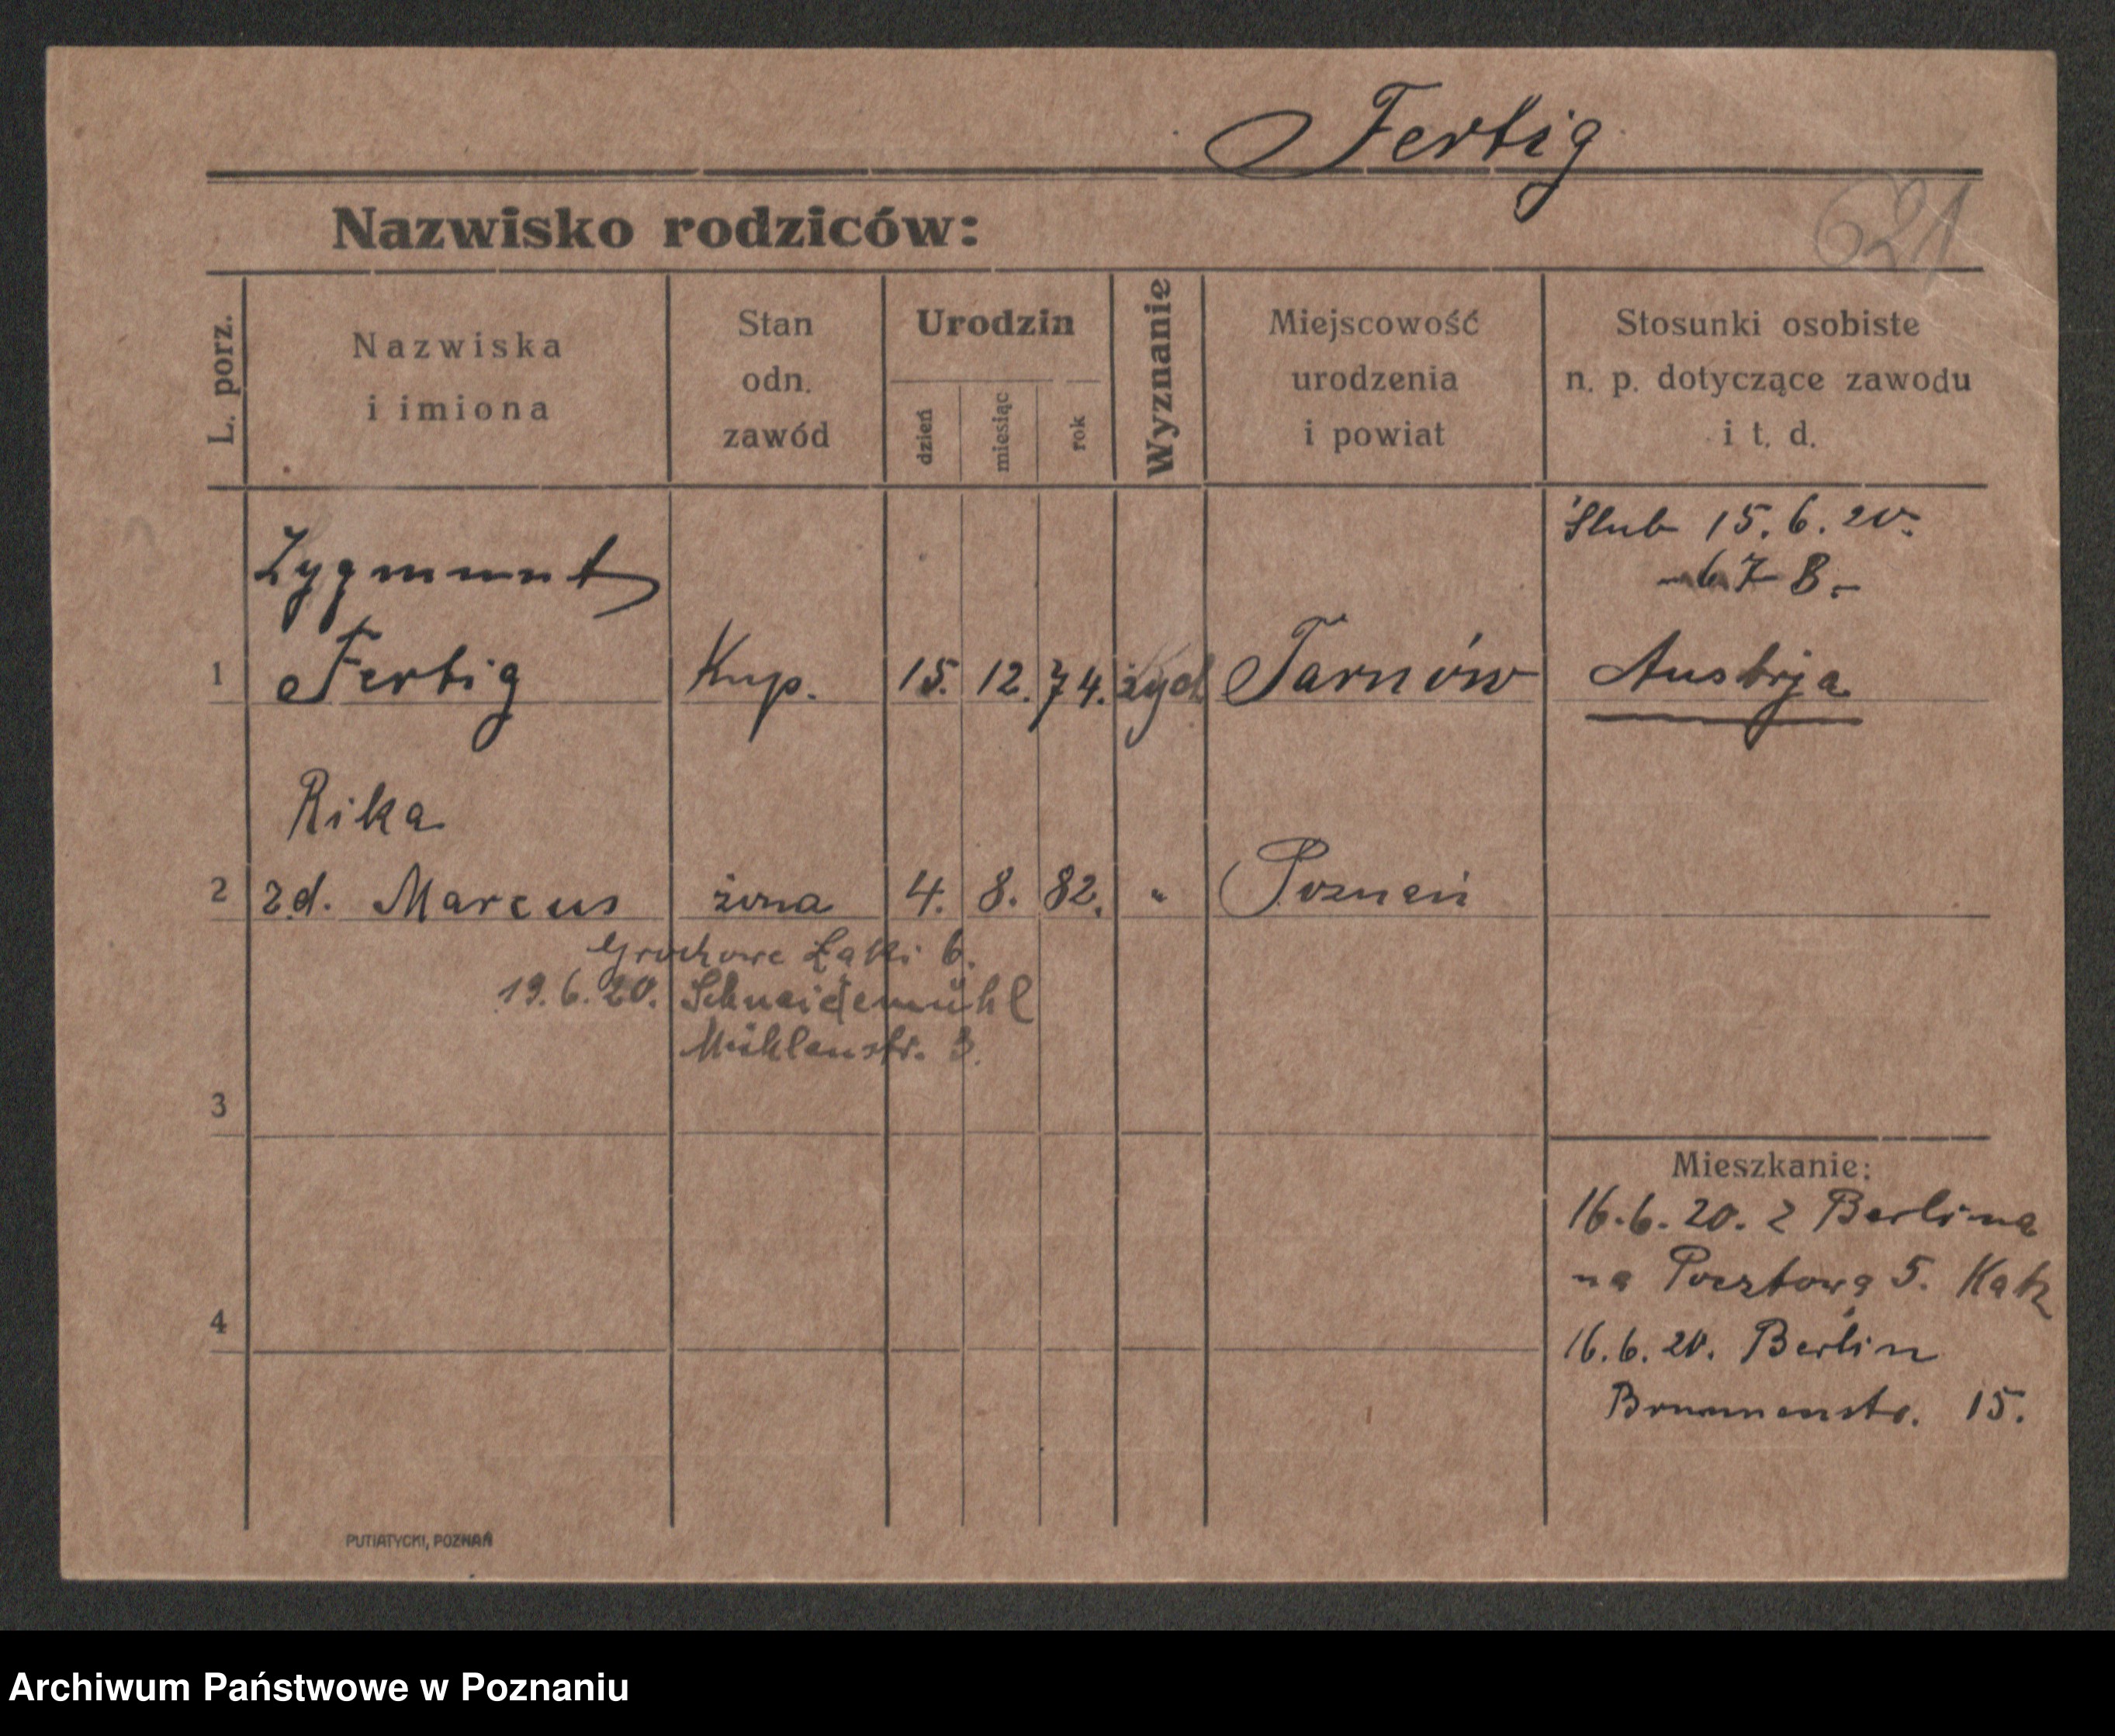 Fertig
621
Nazwisko rodziców:
L. porz.
Nazwiska
i imiona
Stan
odn.
zawód
Urodzin
dzień
miesiąc
rok
Wyznanie
Miejscowość
urodzenia
i powiat
Stosunki osobiste
n. p. dotyczące zawodu
i t. d.
Ślub 15. 6. 20.
B.
Zygmunt
1 Fertig Kup. 15. 12. 74. żyd Tarnów Austrja
Rika
2 zd. Marcus żona 4. 8. 82. " Poznań
Grochowe Łąki 6.
19. 6. 20. Schneidemühl
Mühlenstr. 3.
3
Mieszkanie:
16. 6. 20. z Berlina
na Pocztową 5. Katz
4
16. 6. 20. Berlin
Brunnenstr. 15.
PUTIATYCKI, POZNAŃ
Archiwum Państwowe w Poznaniu